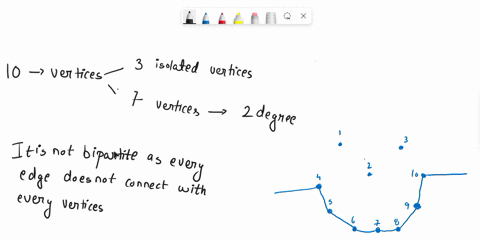 3 isolated vertices
10 → vertices
7 vertices → 2 degree
It is not bipartite as every
edge does not connect with
every vertices
1
3
2
4
10
5
9
6 7 8